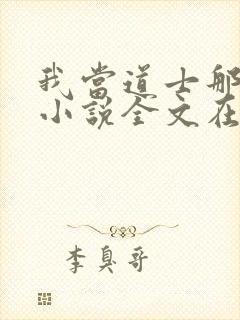 我當道士那
小說全文在
李臭哥